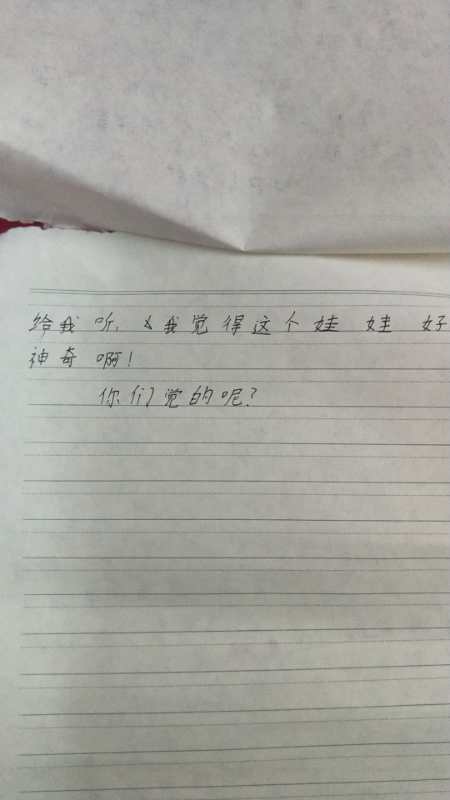 给我听,我觉得这个娃娃好
神奇啊!
你们觉的呢?